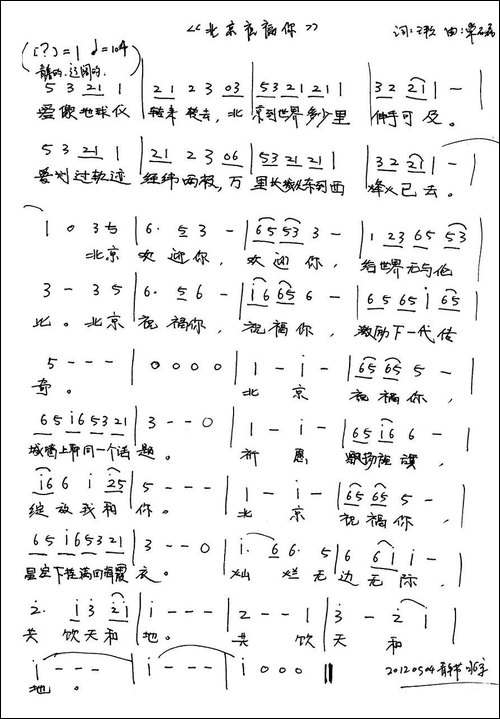 《北京祝福你》
词: 曲:
([?]=1 ♩=104
5 3 21 1 | 21 2 3 03 | 53 21 21 1 | 3 2 21 1 - |
爱像地球仪 转来转去, 北京到世界多少里 伸手可及。
5 3 21 1 | 21 2 3 06 | 53 21 21 1 | 3 2 21 1 - |
爱划过轨迹 经纬两极, 万里长城从东到西 烽火已去。
1 0 3 5 | 6. 5 3 - | 65 53 3 - | 1 23 65 53 |
北京 欢迎你, 欢迎你, 给世界无与伦
3 - 3 5 | 6. 5 6 - | i6 65 6 - | 6 5 65 i 65 |
比。北京 祝福你, 祝福你, 激励下一代传
5 - - - | 0 0 0 0 | 1 - i - | 65 65 5 - |
奇。 北京 祝福你,
65 i6 53 21 | 3 - - 0 | 1 - i - | 65 i6 6 - |
城墙上有同一个话题。 祈愿 飘扬旌旗,
i6 6 i 25 | 5 - - - | 1 - i - | 65 65 5 - |
绽放我和你。 北京 祝福你,
65 i6 53 21 | 3 - - 0 | i. 6 6. 5 | 6 6 i i - |
星空下挂满霞衣。 灿烂无边无际,
2. i 3 2 i | i - - - | 2 - - 1 | 3 - 2 i |
共饮天和地。 共饮天和
i - - - | i - - - | i 0 0 0 ‖
地。
20120504青年节